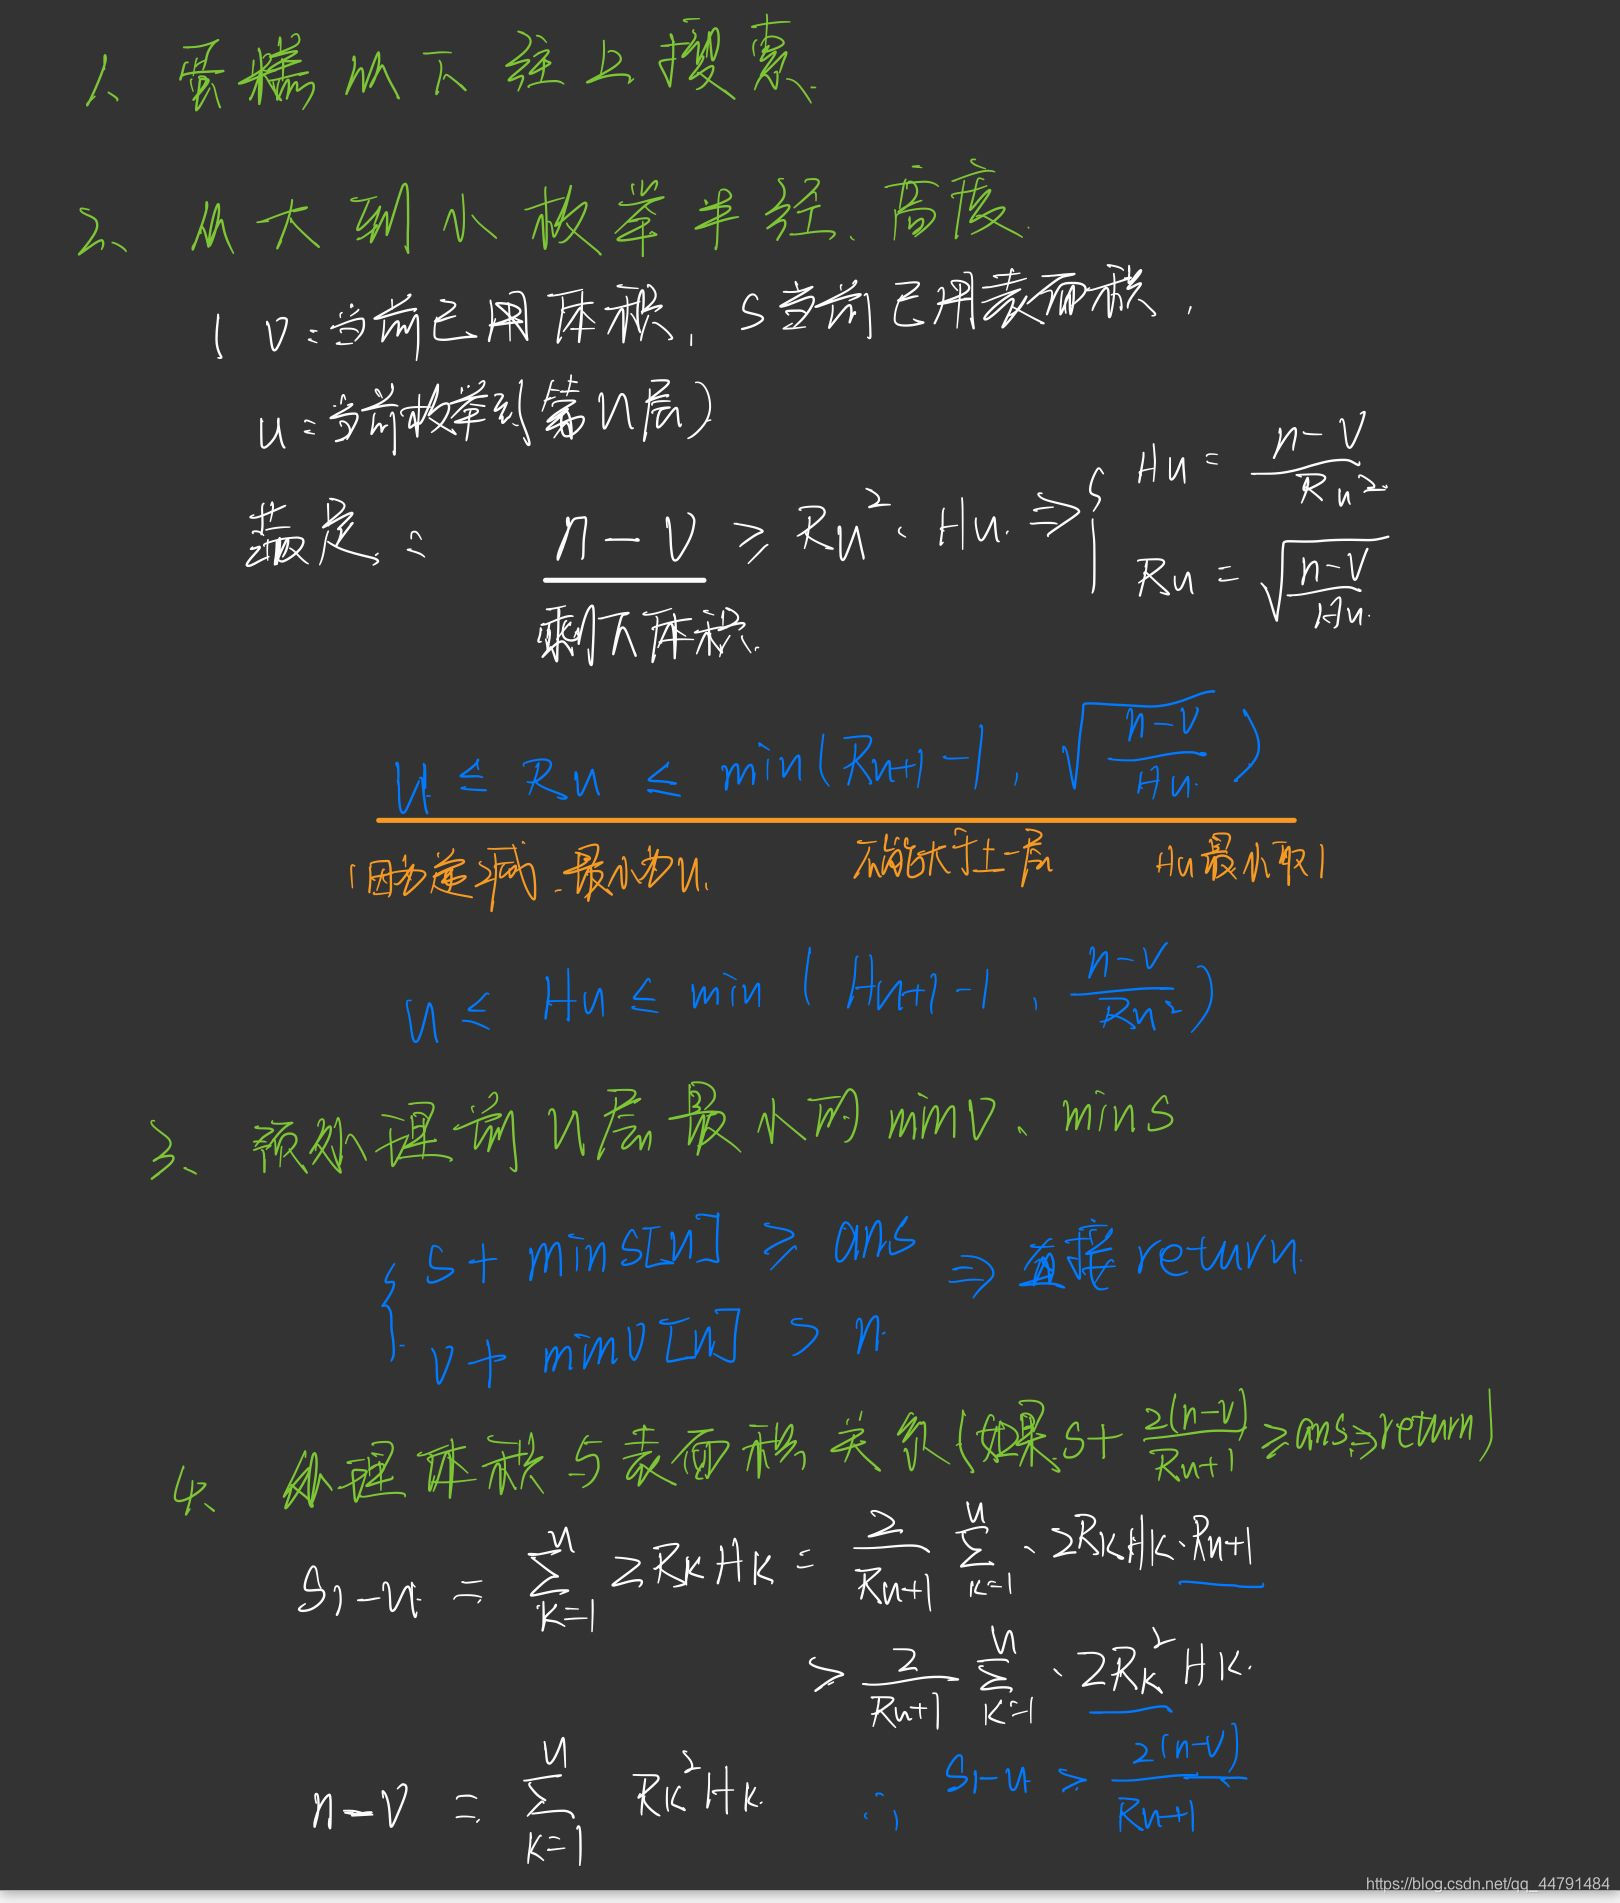 1、蛋糕从下往上搜索.
2、从大到小枚举半径、高度.
( v:当前已用体积, s当前已用表面积,
u:当前枚举到第u层)
满足: n-v ≥ Ru²·Hu. ⇒ { Hu = (n-v)/Ru²
Ru = √((n-v)/Hu)
剩下体积.
u ≤ Ru ≤ min(Ru+1-1, √((n-v)/Hu))
(因为递减,最小为u. 不能大于上一层 Hu最小取1
u ≤ Hu ≤ min(Hu+1-1, (n-v)/Ru²)
3、预处理前u层最小的minv、mins
{ s+mins[u] ≥ ans ⇒ 直接return.
v+minv[u] > n.
4、处理体积与表面积关系(如果s+2(n-v)/Ru+1 ≥ans⇒return)
S1-u = Σ(k=1..u) 2RkHk = 2/Ru+1 Σ(k=1..u)·2RkHk·Ru+1
> 2/Ru+1 Σ(k=1..u)·2Rk²Hk.
n-v = Σ(k=1..u) Rk²Hk. ∴ S1-u > 2(n-v)/Ru+1
https://blog.csdn.net/qq_44791484